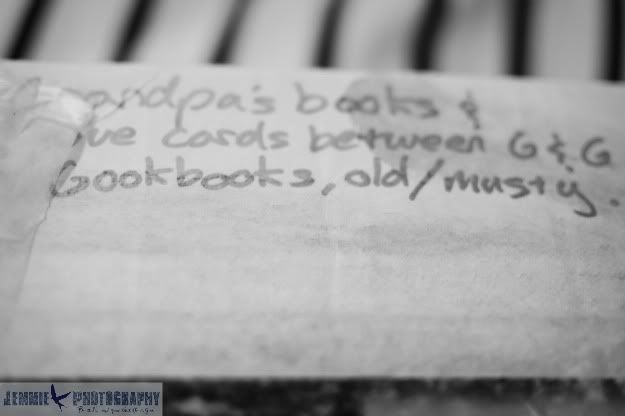 Grandpa's books &
ve cards between G & G
Cookbooks, old/musty.
JEMMIE PHOTOGRAPHY